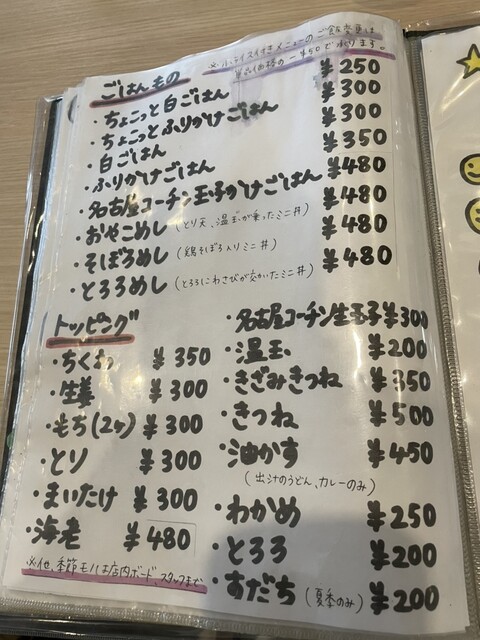 ごはんもの
※小ライス付きメニューのご飯変更は
単品価格の-¥50で承ります。
・ちょこっと白ごはん ¥250
・ちょこっとふりかけごはん ¥300
・白ごはん ¥300
・ふりかけごはん ¥350
・名古屋コーチン玉子かけごはん ¥480
・おやこめし(とり天、温玉が乗ったミニ丼) ¥480
・そぼろめし(鶏そぼろ入りミニ丼) ¥480
・とろろめし(とろろにわさびが効いたミニ丼) ¥480
トッピング
・ちくわ ¥350
・生姜 ¥300
・もち(2ヶ) ¥300
・とり ¥300
・まいたけ ¥300
・海老 ¥480
※他、季節モノは店内ボード、スタッフまで
・名古屋コーチン生玉子¥300
・温玉 ¥200
・きざみきつね ¥350
・きつね ¥500
・油かす ¥450
(出汁のうどん、カレーのみ)
・わかめ ¥250
・とろろ ¥200
・すだち(夏季のみ) ¥200